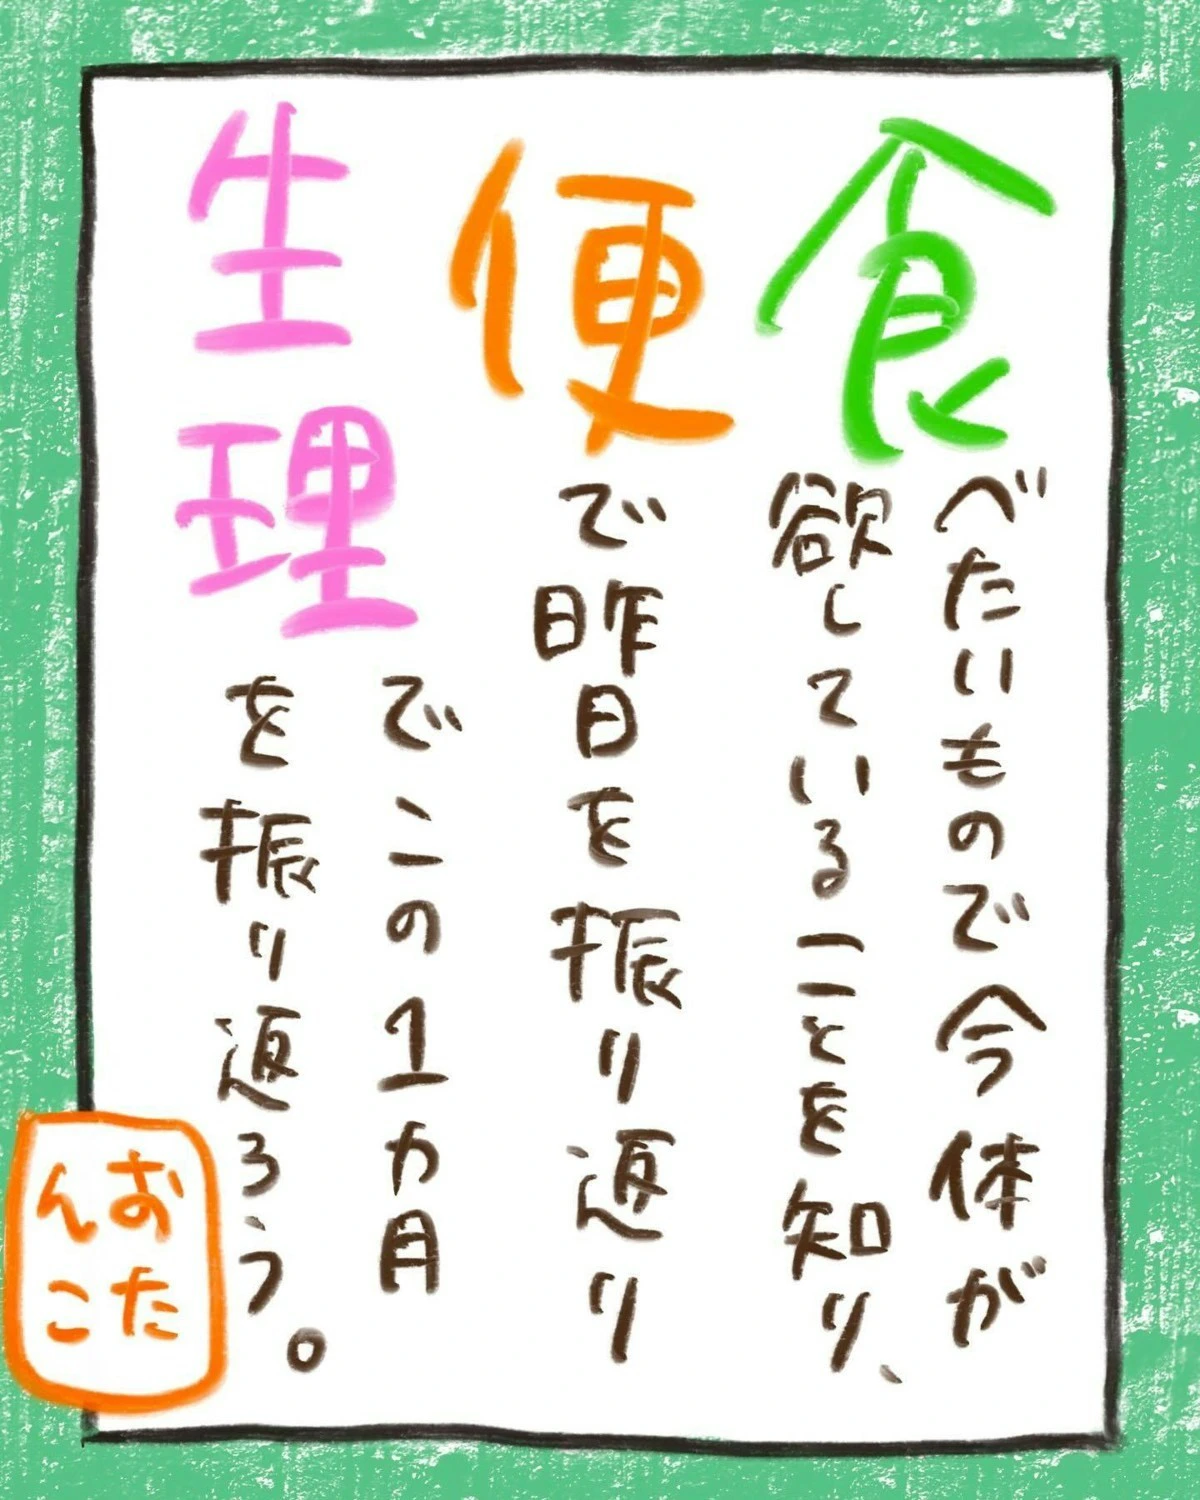 食べたいもので今体が
欲していることを知り、
便で昨日を振り返り
生理でこの1カ月
を振り返ろう。
おた
んこ